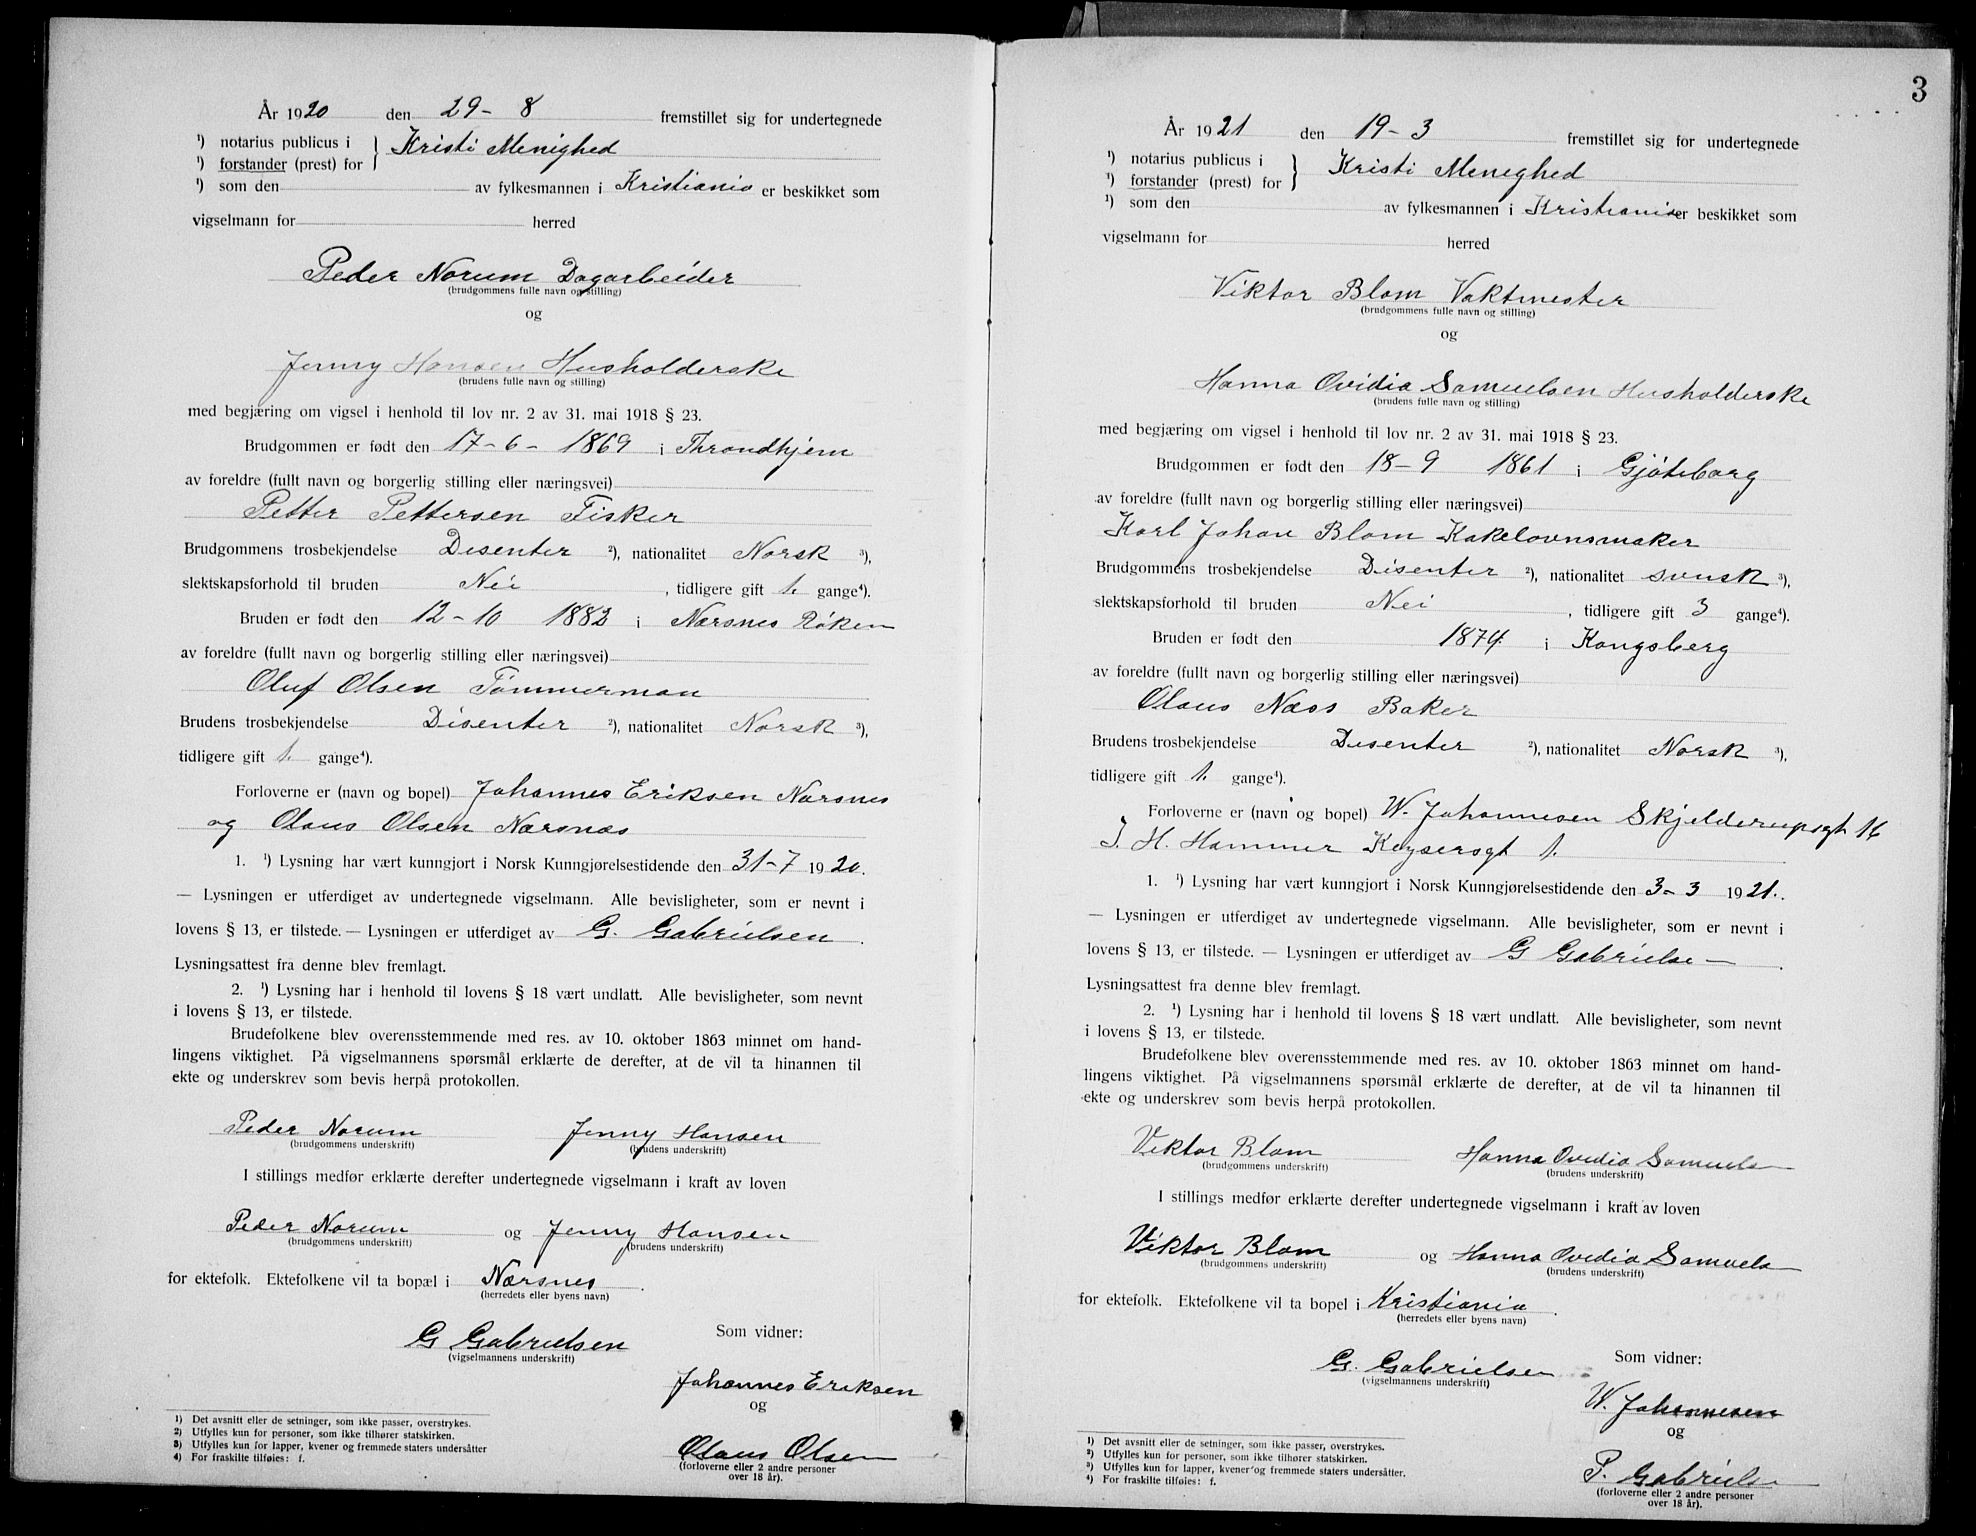 År 1920 den 29-8 fremstillet sig for undertegnede
¹) notarius publicus i
¹) forstander (prest) for } Kristi Menighed
¹) som den av fylkesmannen i Kristiania er beskikket som
vigselmann for herred
Peder Norum Dagarbeider
(brudgommens fulle navn og stilling)
og
Jenny Hansen Husholderske
(brudens fulle navn og stilling)
med begjæring om vigsel i henhold til lov nr. 2 av 31. mai 1918 § 23.
Brudgommen er født den 17-6- 1869 i Throndhjem
av foreldre (fullt navn og borgerlig stilling eller næringsvei)
Petter Pettersen Fisker
Brudgommens trosbekjendelse Disenter ²), nationalitet Norsk ³),
slektskapsforhold til bruden Nei , tidligere gift 1. gange⁴).
Bruden er født den 12-10 1882 i Nærsnes Røken
av foreldre (fullt navn og borgerlig stilling eller næringsvei)
Oluf Olsen Tømmerman
Brudens trosbekjendelse Disenter ²), nationalitet Norsk ³),
tidligere gift 1. gange⁴).
Forloverne er (navn og bopel) Johannes Eriksen Nærsnes
og Olaus Olsen Nærsnæs
1. ¹) Lysning har vært kunngjort i Norsk Kunngjørelsestidende den 31-7 1920.
— Lysningen er utferdiget av undertegnede vigselmann. Alle bevisligheter, som er nevnt i
lovens § 13, er tilstede. — Lysningen er utferdiget av G. Gabrielsen .
Lysningsattest fra denne blev fremlagt.
2. ¹) Lysning har i henhold til lovens § 18 vært undlatt. Alle bevisligheter, som nevnt
i lovens § 13, er tilstede.
Brudefolkene blev overensstemmende med res. av 10. oktober 1863 minnet om hand-
lingens viktighet. På vigselmannens spørsmål erklærte de derefter, at de vil ta hinannen til
ekte og underskrev som bevis herpå protokollen.
Peder Norum Jenny Hansen
(brudgommens underskrift) (brudens underskrift)
I stillings medfør erklærte derefter undertegnede vigselmann i kraft av loven
Peder Norum og Jenny Hansen
(brudgommens underskrift) (brudens underskrift)
for ektefolk. Ektefolkene vil ta bopæl i Nærsnes .
(herredets eller byens navn)
Som vidner:
G Gabrielsen
(vigselmannens underskrift)
Johannes Eriksen
og
Olaus Olsen
(forloverne eller 2 andre personer
over 18 år).
1) Det avsnitt eller de setninger, som ikke passer, overstrykes.
2) Utfylles kun for personer, som ikke tilhører statskirken.
3) Utfylles kun for lapper, kvener og fremmede staters undersåtter
4) For fraskilte tilføies: f.
3
År 1921 den 19-3 fremstillet sig for undertegnede
¹) notarius publicus i
¹) forstander (prest) for } Kristi Menighed
¹) som den av fylkesmannen i Kristiania er beskikket som
vigselmann for herred
Viktor Blom Vaktmester
(brudgommens fulle navn og stilling)
og
Hanna Ovidia Samuelsen Husholderske
(brudens fulle navn og stilling)
med begjæring om vigsel i henhold til lov nr. 2 av 31. mai 1918 § 23.
Brudgommen er født den 18-9 1861 i Gjøteborg
av foreldre (fullt navn og borgerlig stilling eller næringsvei)
Karl Johan Blom Kakelovnsmaker
Brudgommens trosbekjendelse Disenter ²), nationalitet svensk ³),
slektskapsforhold til bruden Nei , tidligere gift 3 gange⁴).
Bruden er født den 1874 i Kongsberg
av foreldre (fullt navn og borgerlig stilling eller næringsvei)
Olaus Næss Baker
Brudens trosbekjendelse Disenter ²), nationalitet Norsk ³),
tidligere gift 1. gange⁴).
Forloverne er (navn og bopel) W. Johannesen Skjelderupsgt 16
J. H. Hammer Keysersgt 1.
1. ¹) Lysning har vært kunngjort i Norsk Kunngjørelsestidende den 3-3 1921.
— Lysningen er utferdiget av undertegnede vigselmann. Alle bevisligheter, som er nevnt i
lovens § 13, er tilstede. — Lysningen er utferdiget av G Gabrielse .
Lysningsattest fra denne blev fremlagt.
2. ¹) Lysning har i henhold til lovens § 18 vært undlatt. Alle bevisligheter, som nevnt
i lovens § 13, er tilstede.
Brudefolkene blev overensstemmende med res. av 10. oktober 1863 minnet om hand-
lingens viktighet. På vigselmannens spørsmål erklærte de derefter, at de vil ta hinannen til
ekte og underskrev som bevis herpå protokollen.
Viktor Blom Hanna Ovidia Samuels
(brudgommens underskrift) (brudens underskrift)
I stillings medfør erklærte derefter undertegnede vigselmann i kraft av loven
Viktor Blom og Hanna Ovidia Samuels
(brudgommens underskrift) (brudens underskrift)
for ektefolk. Ektefolkene vil ta bopel i Kristiania .
(herredets eller byens navn)
Som vidner:
G. Gabrielsen
(vigselmannens underskrift)
W. Johannesen
og
P. Gabriels
(forloverne eller 2 andre personer
over 18 år).
1) Det avsnitt eller de setninger, som ikke passer, overstrykes.
2) Utfylles kun for personer, som ikke tilhører statskirken.
3) Utfylles kun for lapper, kvener og fremmede staters undersåtter.
4) For fraskilte tilføies: f.